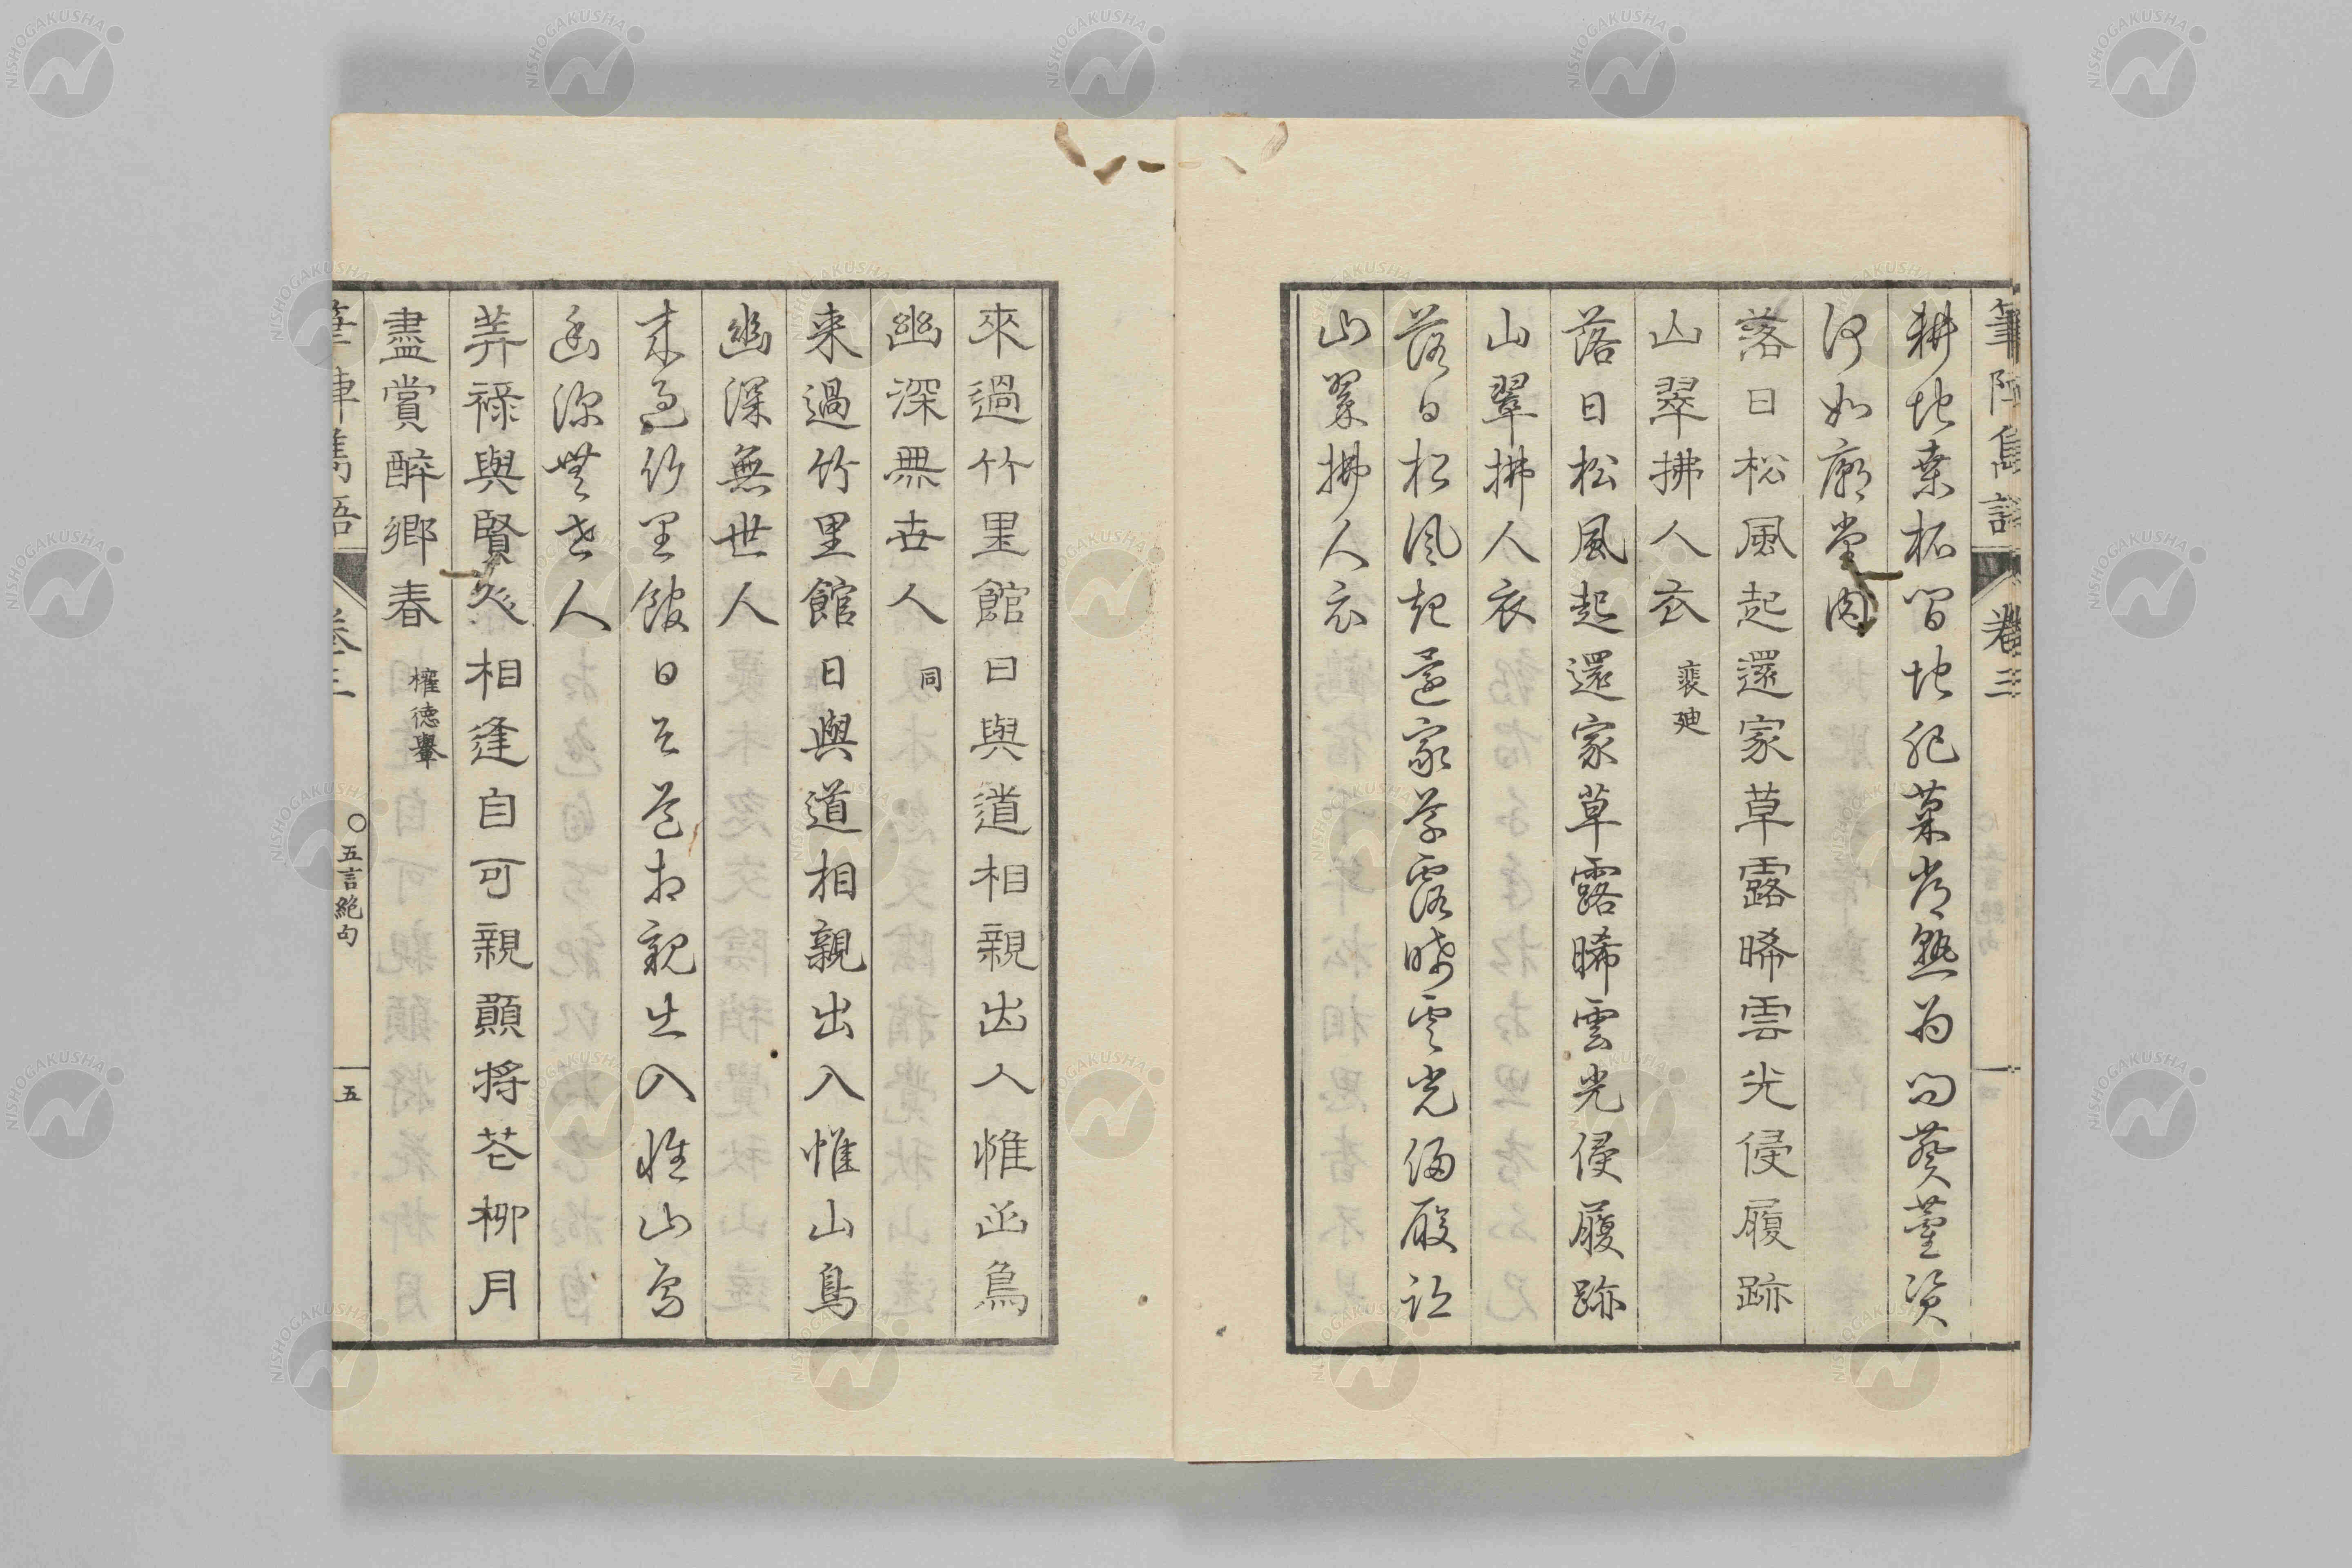 筆陣雋語 卷三
耕地桑柘間地肥菜常熟為問葵藿資
何如廟堂肉
落日松風起還家草露晞雲光侵履跡
山翠拂人衣 裴迪
落日松風起還家草露晞雲光侵履跡
山翠拂人衣
落日松風起還家草露晞雲光侵履跡
山翠拂人衣
來過竹里館日與道相親出入惟山鳥
幽深無世人 同
来過竹里館日與道相親出入惟山鳥
幽深無世人
来過竹里館日與道相親出入惟山鳥
幽深無世人
美祿與賢人相逢自可親願將花柳月
盡賞醉鄉春 權德輿
筆陣雋語 卷三 〇五言絶句 五
NISHOGAKUSHA